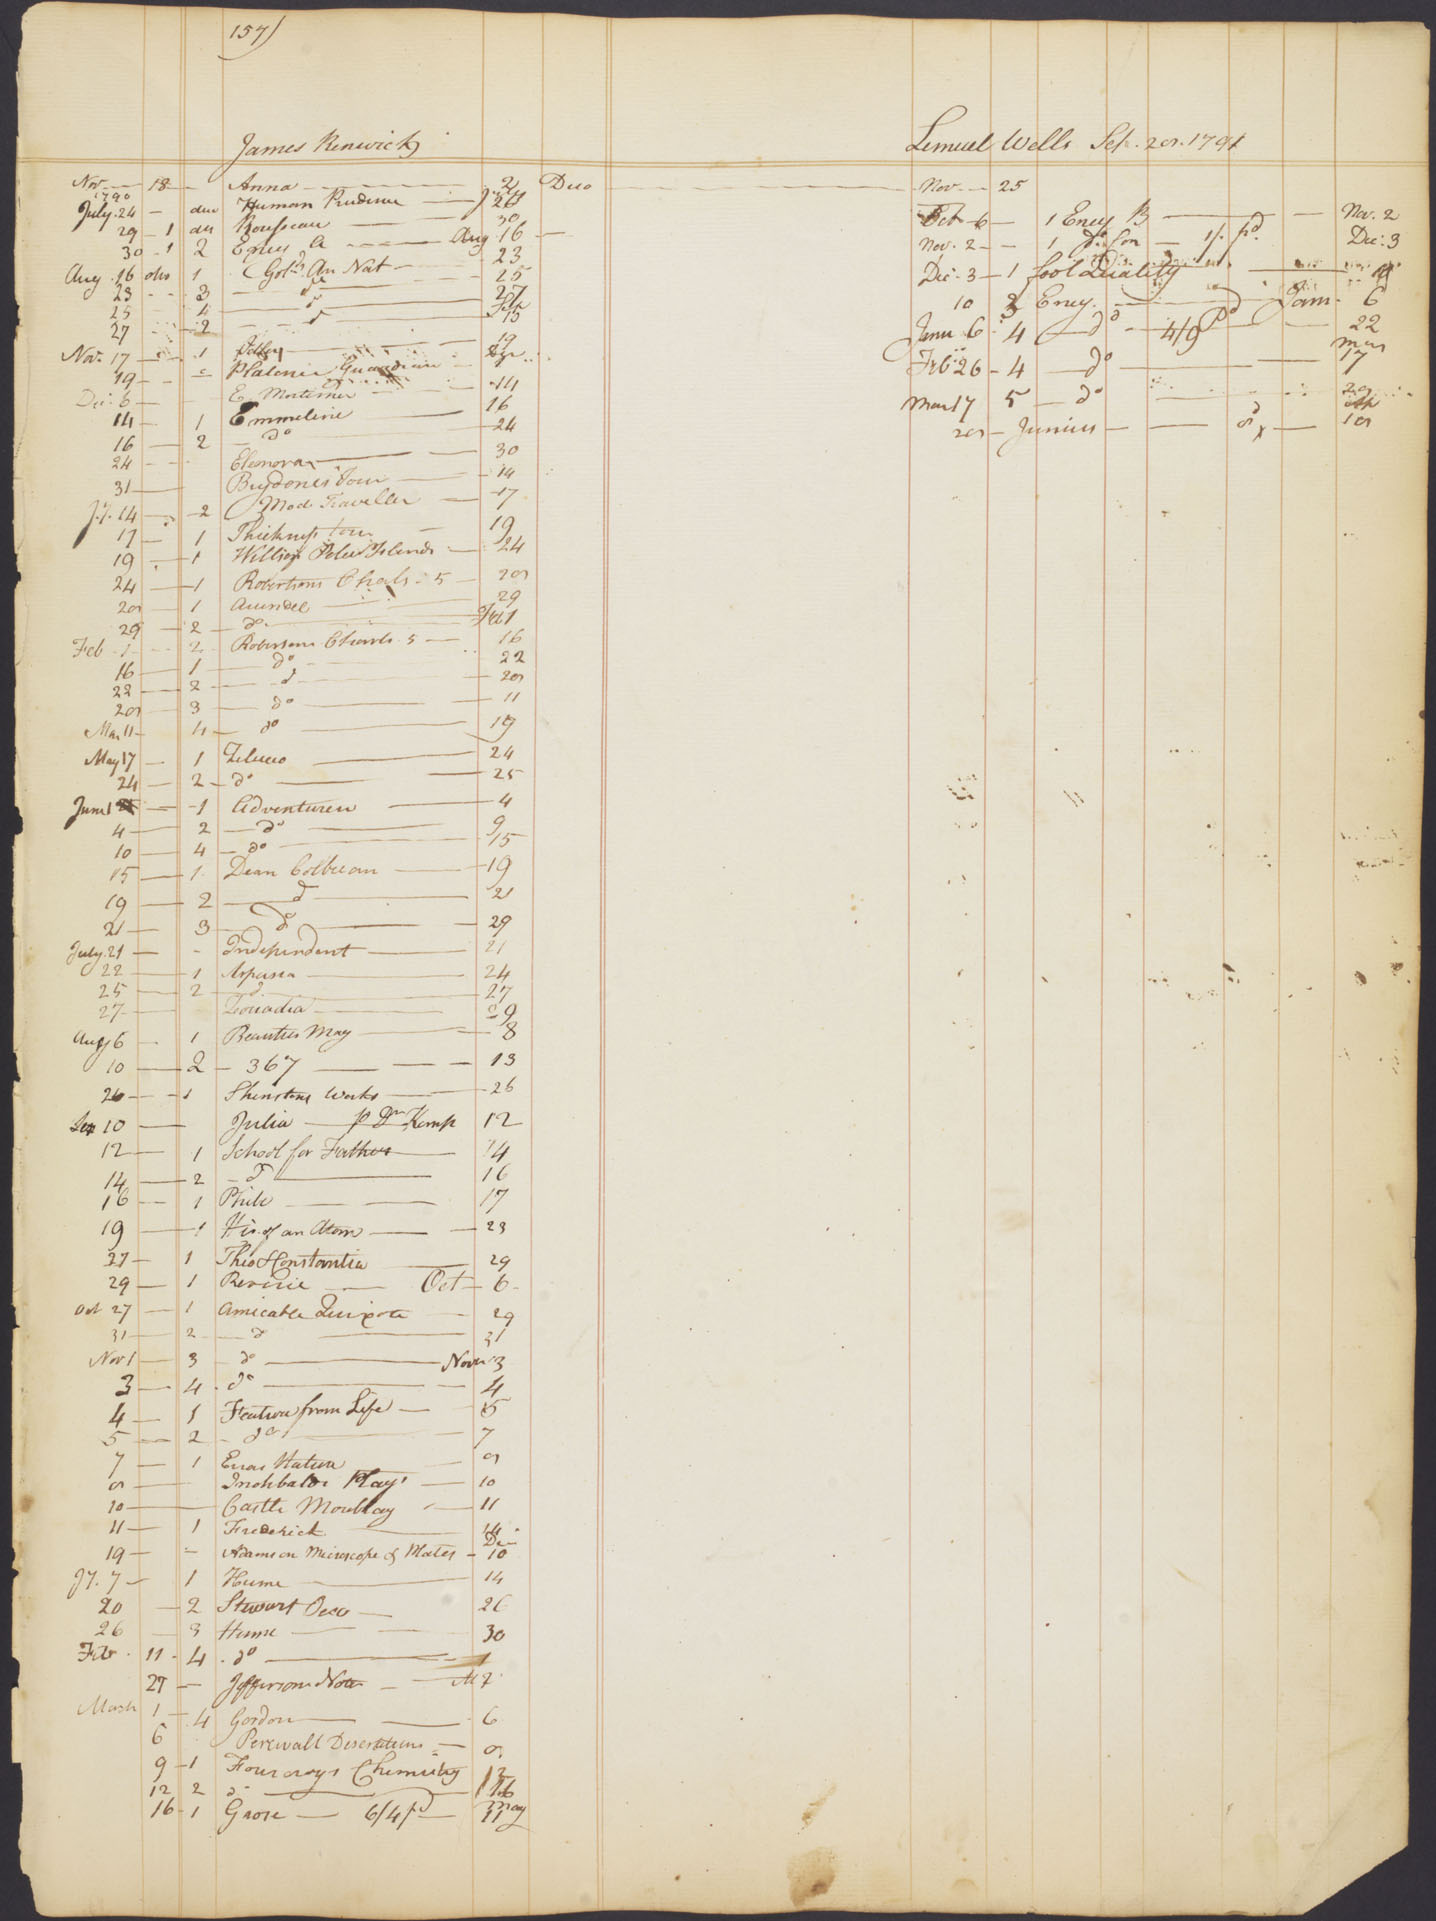 157)
James Renwick
Nov 18 Anna 2 Duo
1790 July
July 24 duo Human Prudence 26
29 1 duo Rousseau 30
30 1 2 Ency A Aug 16
Aug. 16 1 Gol. An Nat 23
23 3 do 25
25 4 do 27
27 2 do 15
Nov. 17 1 19
19 Platonic Guardian
Dec. 6 E Mortimer 14
14 1 Emmeline 16
16 2 do 24
24 Eleonora 30
31 Brydones Tour 14
Jy. 14 2 Mod Traveller 17
17 1 Thickness tour 19
19 1 Pelew Islands 24
24 1 Robertsons Chals. 5 28
28 1 Arundel 29
29 2 do Feb 1
Feb 1 2 Robertsons Charls 5 16
16 1 do 22
22 2 do 28
28 3 do 11
Mar 11 4 do 19
May 17 1 Zeluco 24
24 2 do 25
June 1 1 Adventurer 4
4 2 do 9
10 4 do 15
15 1 Dean Colbran 19
19 2 do 21
21 3 do 29
July. 21 Independent 21
22 1 Aspasia 24
25 2 do 27
27 Zoriada 29
Aug 6 1 Beauties Mag 8
10 2 367 13
26 1 Shenstons Works 26
Sep 10 Julia p Dr Kemp 12
12 1 School for Fathers 14
14 2 do 16
16 1 Phile 17
19 1 His. of an Atom 23
27 1 Theo & Constantia 29
29 1 Reverie Oct 6
Oct 27 1 Amicable Quixote 29
31 2 do 31
Nov 1 3 do Nov 3
3 4 do 4
4 1 Featura from Life 5
5 2 do 7
7 1 Errors Nature 8
8 Inchbalds Plays 10
10 Castle Mowbray 11
11 1 Frederick 14
19 Adams on Microscope & Plates Dec 10
Jy. 7 1 Hume 14
20 2 Stewart Oeco 26
26 3 Hume 30
Feb. 11 4 do 1
27 Jeffersons Notes M 7
March 1 4 Gordon 6
6 Percivall Desertations 8
9 1 Fourcroys Chemistry 12
12 2 do 16
16 1 Grose 6/4 pd May 11
Lemuel Wells Sep. 28. 1791
Nov 25
Oct 6 1 Ency B Nov. 2
Nov. 2 1 do Con 1/. pd. Dec. 3
Dec. 3 1 fool Quality
10 3 Ency. Jan. 6
Janu 6 4 do 4/9 pd 22
Feb. 26 4 do Mar 17
Mar 17 5 do 28
28 Junius 18